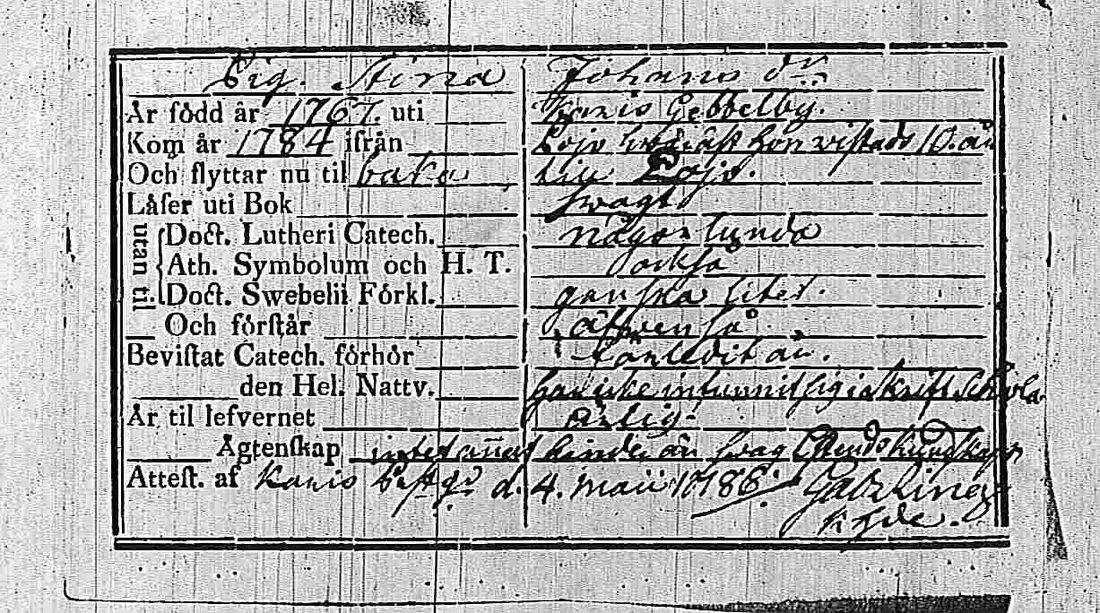 Pig. Stina Johans dr.
Är född år 1767. uti Karis Gebbelby.
Kom år 1784 ifrån Lojo hon vistads 10. år
Och flyttar nu til baka till Lojo.
Läser uti Bok swagt
utan til. Doct. Lutheri Catech. någorlunda
Ath. Symbolum och H. T. också
Doct. Swebelii Förkl. ganska litet.
Och förstår äfwen så
Bevistat Catech. förhör
den Hel. Nattv. har icke infunnit sig i skriftschola
Är til lefvernet ärlig
Ägtenskap intet annat hinder än swag Christendomskundskap
Attest. af Karis d. 4. Maii 1788.